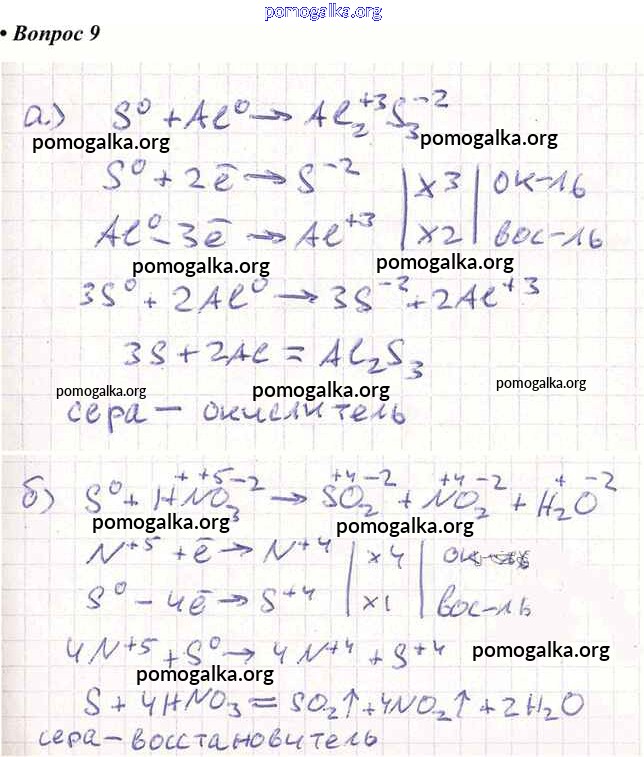 pomogalka.org
• Вопрос 9
а.) S⁰ + Al⁰ → Al₂⁺³S₃⁻²
pomogalka.org pomogalka.org
S⁰ + 2ē → S⁻² | x3 | ок-ль
Al⁰ - 3ē → Al⁺³ | x2 | вос-ль
pomogalka.org pomogalka.org
3S⁰ + 2Al⁰ → 3S⁻² + 2Al⁺³
3S + 2Al = Al₂S₃
pomogalka.org pomogalka.org pomogalka.org
сера – окислитель
б) S⁰ + H⁺N⁺⁵O₃⁻² → S⁺⁴O₂⁻² + N⁺⁴O₂⁻² + H₂⁺O⁻²
pomogalka.org pomogalka.org
N⁺⁵ + ē → N⁺⁴ | x4 | ок-ль
S⁰ - 4ē → S⁺⁴ | x1 | вос-ль
4N⁺⁵ + S⁰ → 4N⁺⁴ + S⁺⁴ pomogalka.org
pomogalka.org
S + 4HNO₃ = SO₂↑ + 4NO₂↑ + 2H₂O
сера – восстановитель